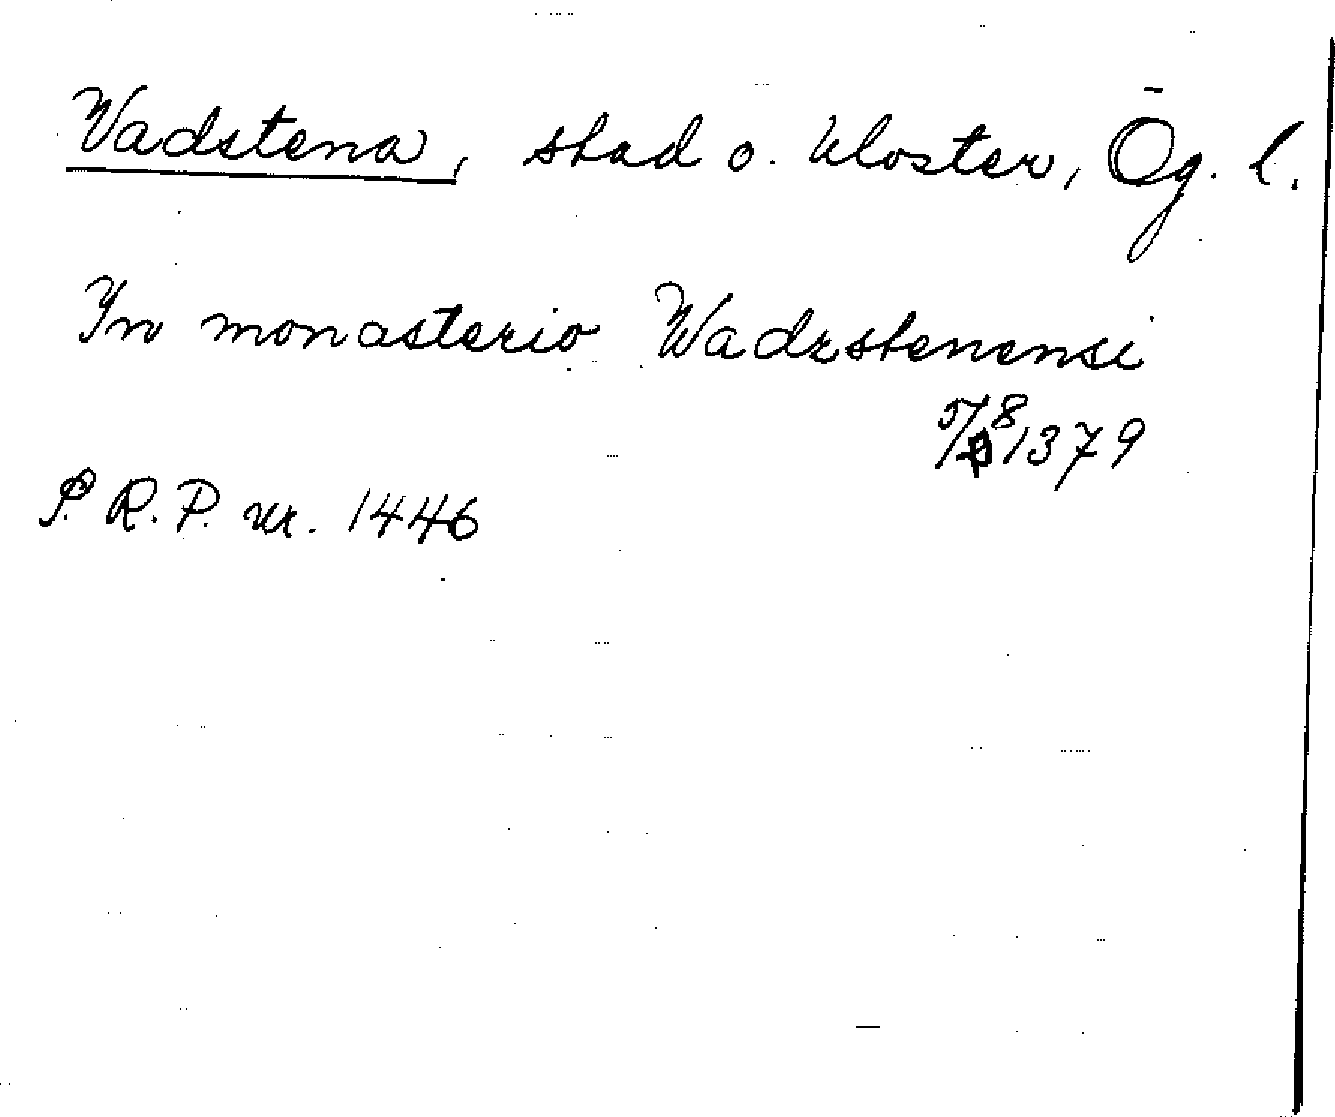 Vadstena, stad o. kloster, Ög. l.
In monasterio Wadzstenensi
5/8 1379
P. R. P. nr. 1446